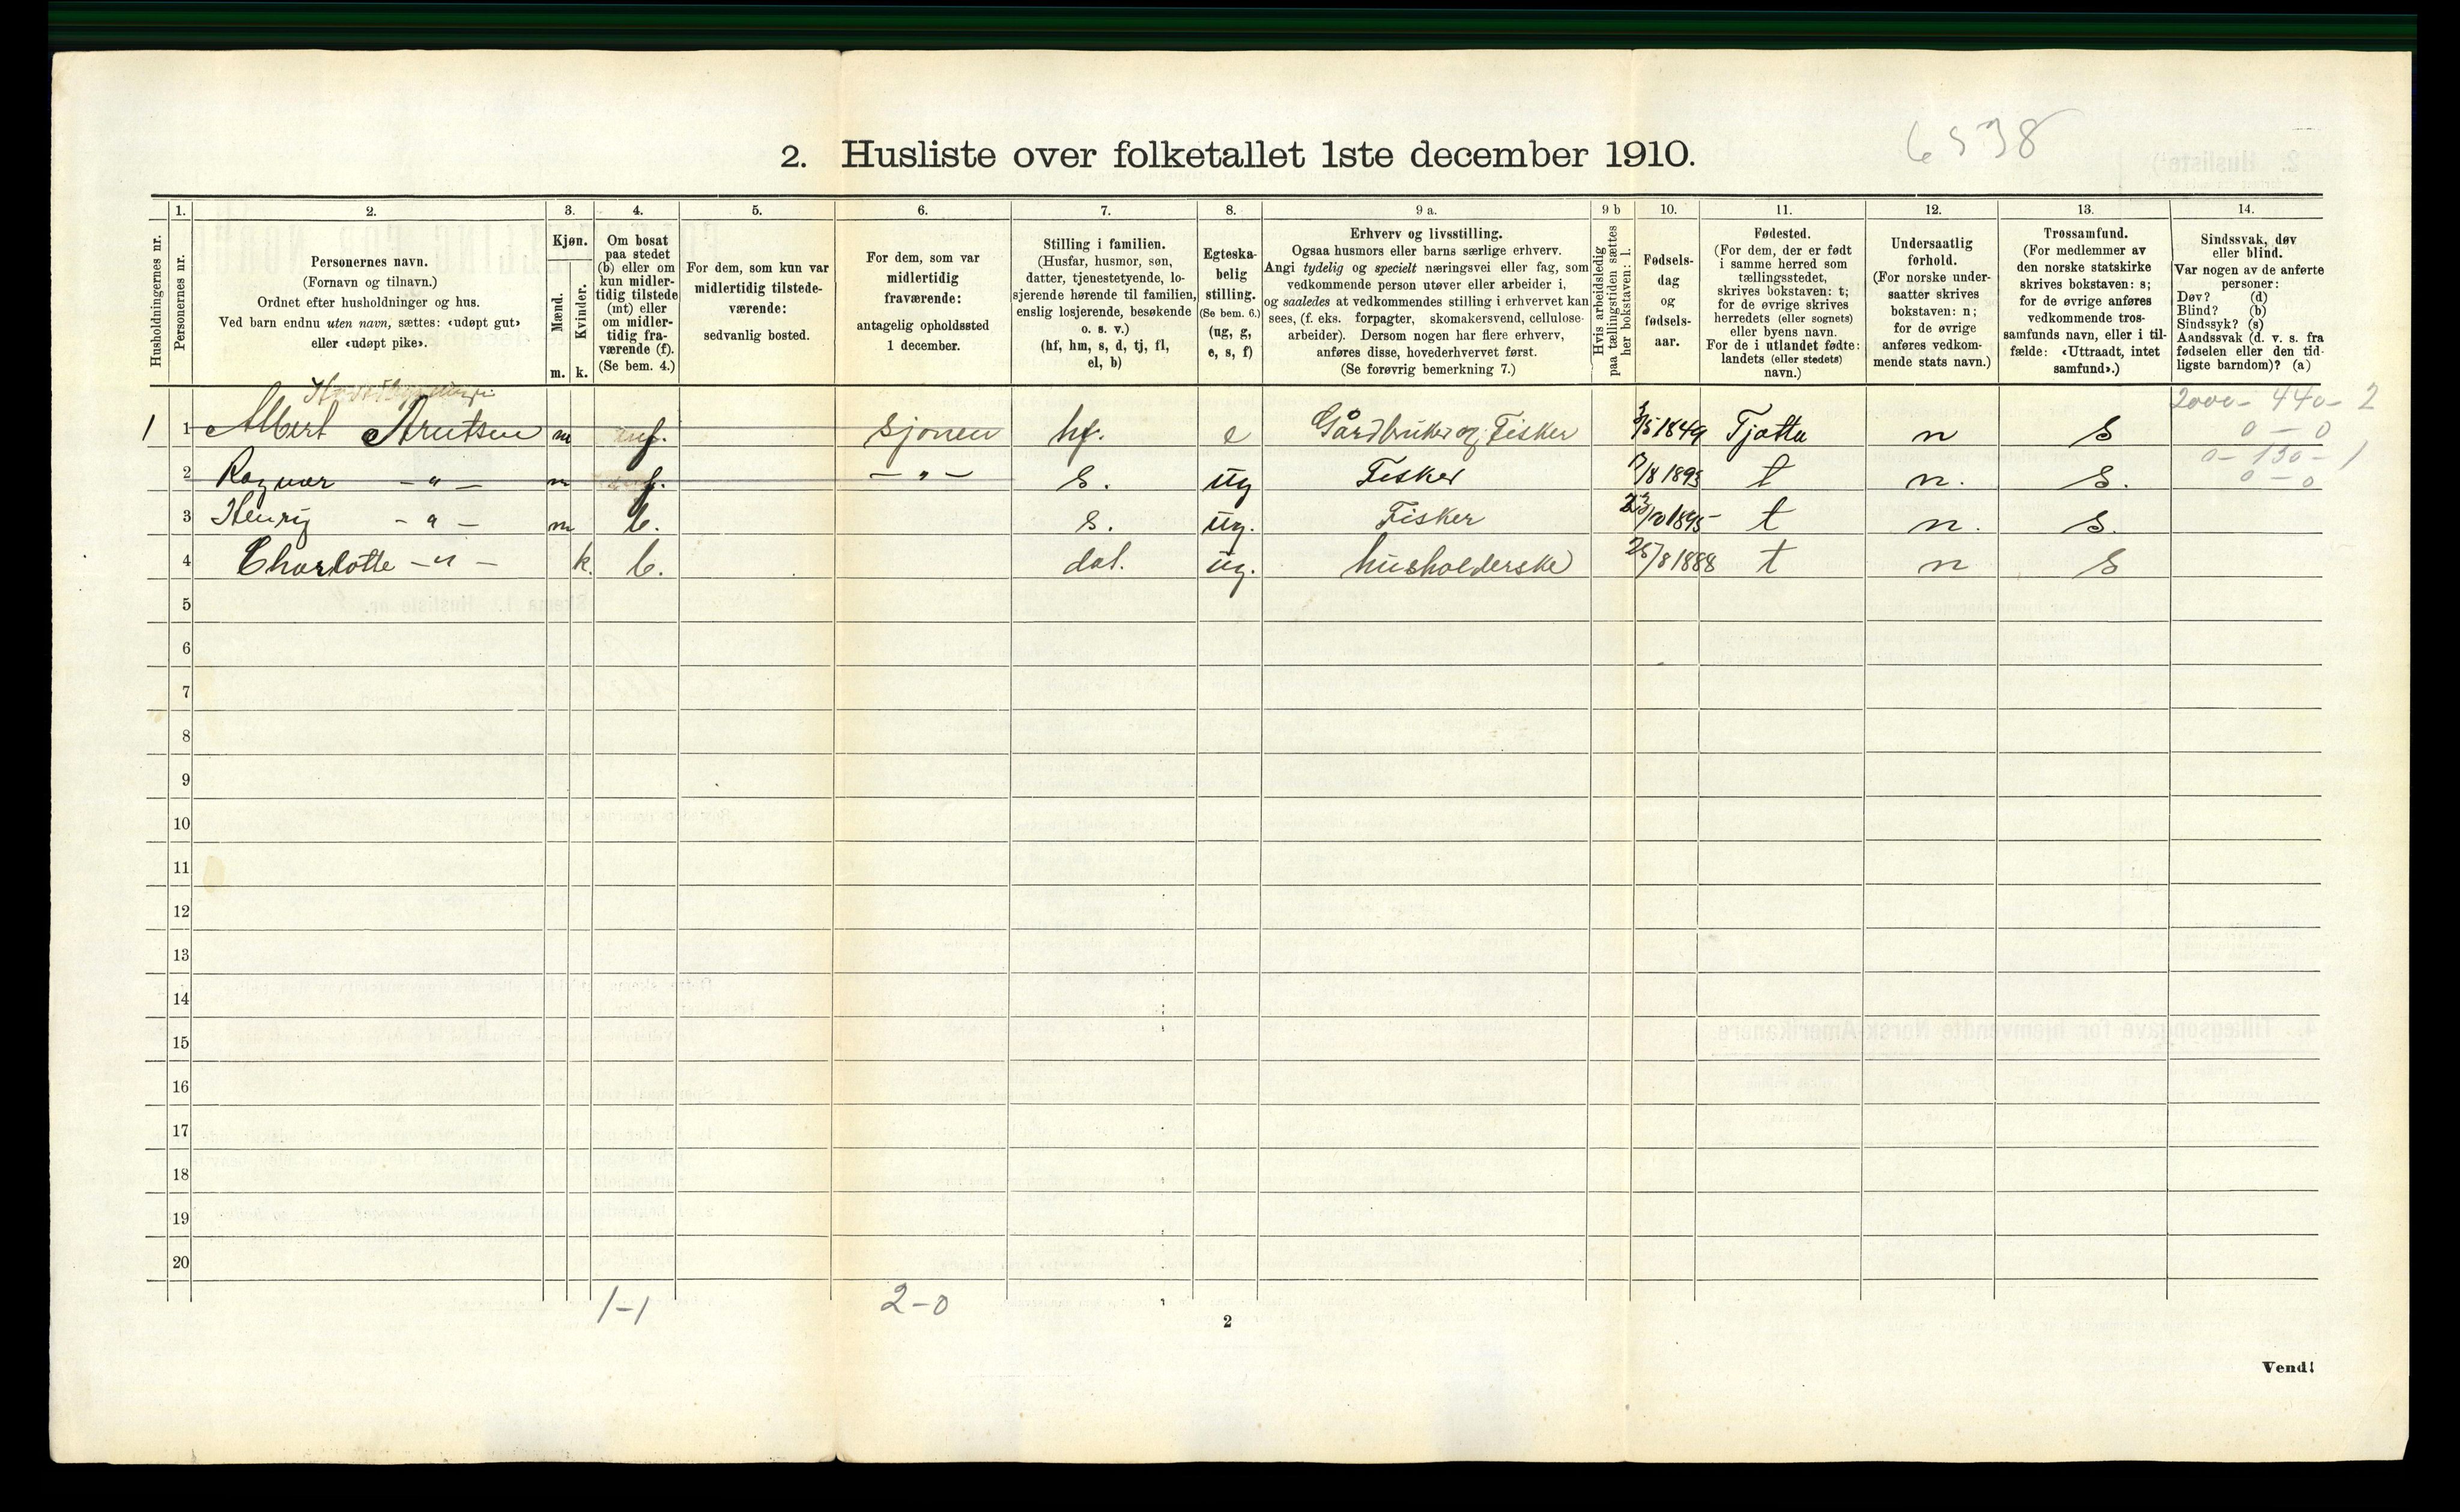 6538
2. Husliste over folketallet 1ste december 1910.
Husholdningernes nr.
1.
Personernes nr.
2.
Personernes navn.
(Fornavn og tilnavn.)
Ordnet efter husholdninger og hus.
Ved barn endnu uten navn, sættes: «udøpt gut»
eller «udøpt pike».
3.
Kjøn.
Mænd.
Kvinder.
m. k.
4.
Om bosat
paa stedet
(b) eller om
kun midler-
tidig tilstede
(mt) eller
om midler-
tidig fra-
værende (f).
(Se bem. 4.)
5.
For dem, som kun var
midlertidig tilstede-
værende:
sedvanlig bosted.
6.
For dem, som var
midlertidig
fraværende:
antagelig opholdssted
1 december.
7.
Stilling i familien.
(Husfar, husmor, søn,
datter, tjenestetyende, lo-
sjerende hørende til familien,
enslig losjerende, besøkende
o. s. v.)
(hf, hm, s, d, tj, fl,
el, b)
8.
Egteska-
belig
stilling.
(Se bem. 6.)
(ug, g,
e, s, f)
9 a.
Erhverv og livsstilling.
Ogsaa husmors eller barns særlige erhverv.
Angi tydelig og specielt næringsvei eller fag, som
vedkommende person utøver eller arbeider i,
og saaledes at vedkommendes stilling i erhvervet kan
sees, (f. eks. forpagter, skomakersvend, cellulose-
arbeider). Dersom nogen har flere erhverv,
anføres disse, hovederhvervet først.
(Se forøvrig bemerkning 7.)
9 b
Hvis arbeidsledig
paa tællingstiden sættes
her bokstaven: l.
10.
Fødsels-
dag
og
fødsels-
aar.
11.
Fødested.
(For dem, der er født
i samme herred som
tællingsstedet,
skrives bokstaven: t;
for de øvrige skrives
herredets (eller sognets)
eller byens navn.
For de i utlandet fødte:
landets (eller stedets)
navn.)
12.
Undersaatlig
forhold.
(For norske under-
saatter skrives
bokstaven: n;
for de øvrige
anføres vedkom-
mende stats navn.)
13.
Trossamfund.
(For medlemmer av
den norske statskirke
skrives bokstaven: s;
for de øvrige anføres
vedkommende tros-
samfunds navn, eller i til-
fælde: «Uttraadt, intet
samfund».)
14.
Sindssvak, døv
eller blind.
Var nogen av de anførte
personer:
Døv? (d)
Blind? (b)
Sindssyk? (s)
Aandssvak (d. v. s. fra
fødselen eller den tid-
ligste barndom)? (a)
2000- 440- 2
1 1 Albert Arntsen m f. Sjonen hf. e Gårdbruker og Fisker 3/5 1849 Tjøtta n S 0 - 0
0- 130- 1
2 Ragnar - " - m f. - " - s. ug Fisker 17/8 1893 t n. S. 0 - 0
3 Henrig - " - m b. s. ug. Fisker 23/10 1895 t n. S.
4 Charlotte - " - k. b. dat. ug. husholderske 25/8 1888 t n S
5
6
7
8
9
10
11
12
13
14
15
16
17
18
19
20
1-1 2-0
2
Vend!